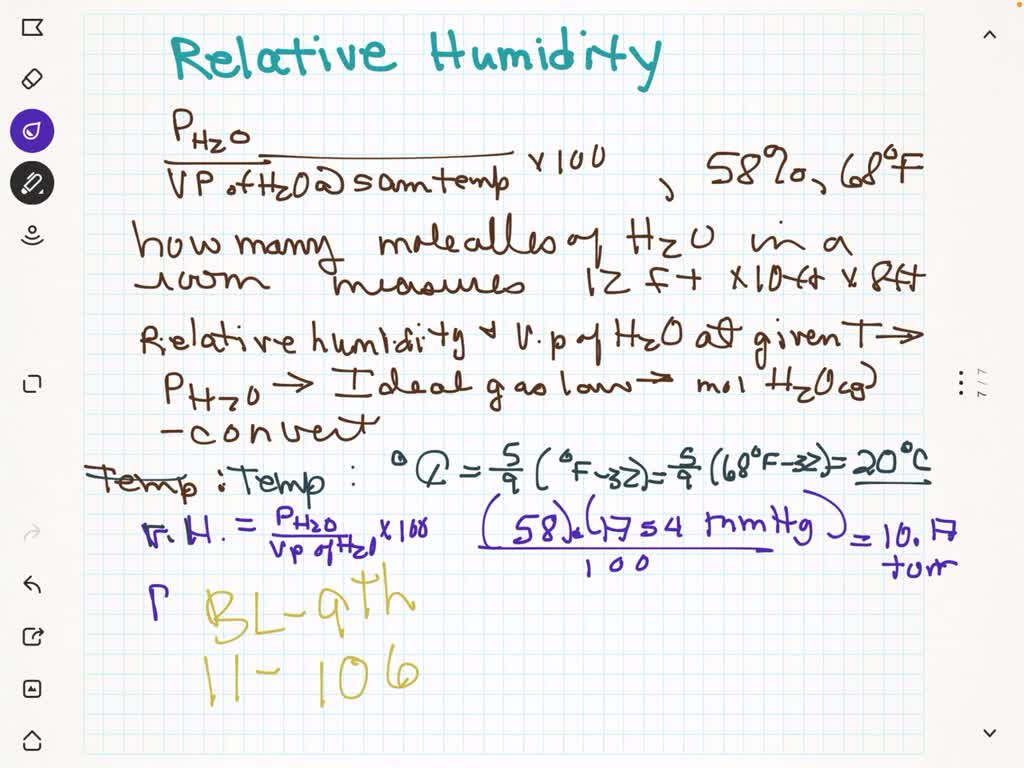 Relative Humidity
P H2O / VP of H2O @ sam temp × 100 , 58%, 68°F
how many molealles of H2O in a
room measures 12 ft × 10 ft × 8ft
Relative humidity & V.p of H2O at given T →
P H2O → Ideal gas law → mol H2O(g)
- convert
Temp : Temp : °C = 5/9 (°F-32) = 5/9 (68°F-32) = 20°C
r. H. = P H2O / Vp of H2O × 100 (58).(1754 mmHg) / 100 = 10.17 torr
P
BL-9th
11-106
7/7